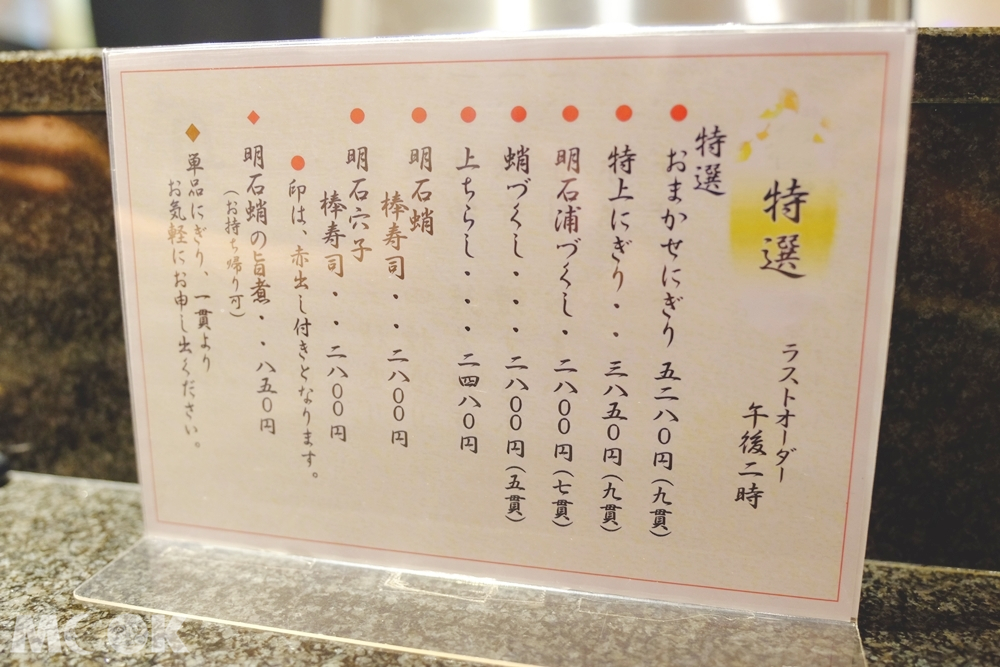 特選
ラストオーダー
午後二時
特選
おまかせにぎり 五二八〇円(九貫)
特上にぎり・・三八五〇円(九貫)
明石浦づくし・二八〇〇円(七貫)
蛸づくし・・・二八〇〇円(五貫)
上ちらし・・・二四八〇円
明石蛸
棒寿司・・二八〇〇円
明石穴子
棒寿司・・二八〇〇円
●印は、赤出し付きとなります。
明石蛸の旨煮・・八五〇円
(お持ち帰り可)
単品にぎり、一貫より
お気軽にお申し出ください。